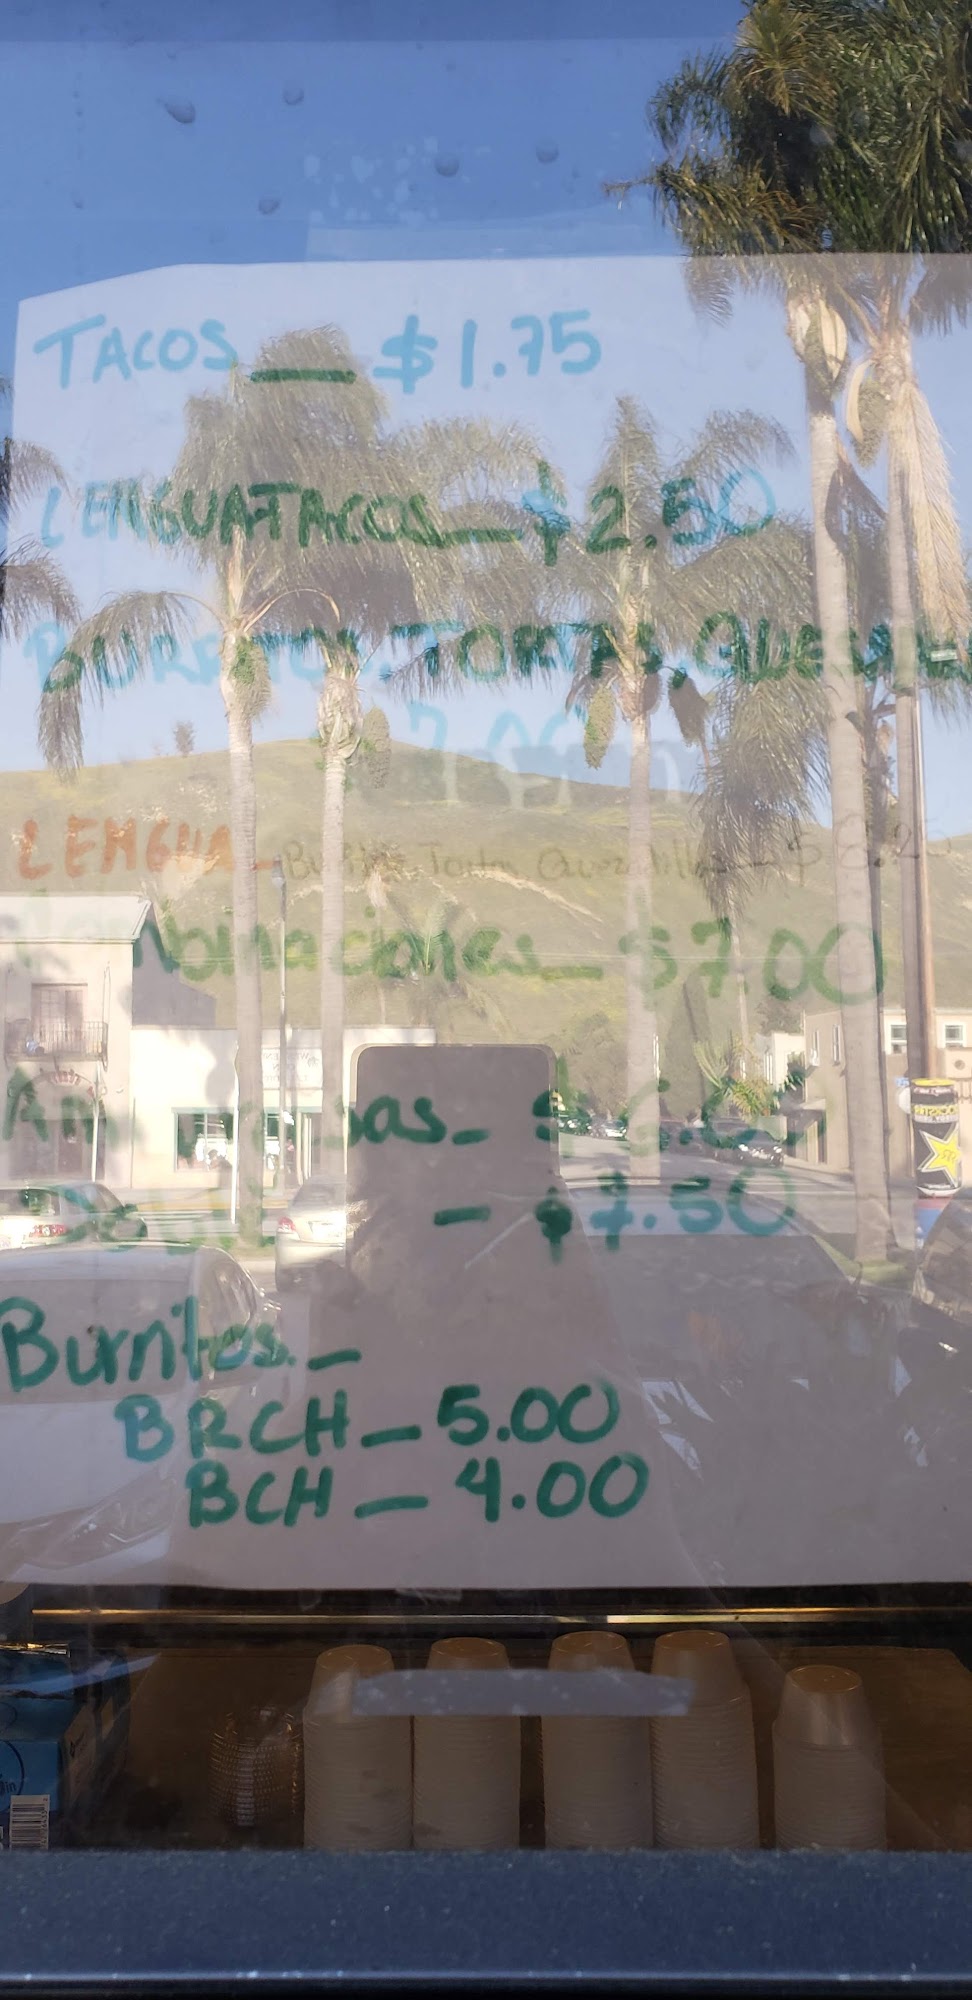 TACOS __ $1.75
LENGUA TACOS _ $2.50
BURRITOS. TORTAS.
7.00
LENGUA _ Burritos Tortas Quesadillas _ $
_ $7.00
_ $
_ $7.50
Burritos. _
BRCH _ 5.00
BCH _ 4.00